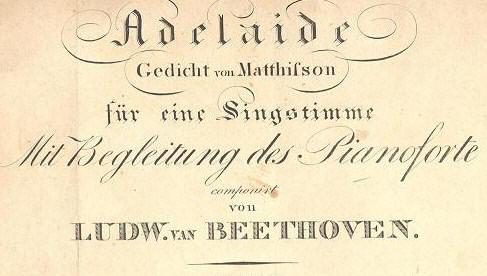 Adelaide
Gedicht von Matthiſson
für eine Singstimme
Mit Begleitung des Pianoforte
componirt
von
LUDW. VAN BEETHOVEN.